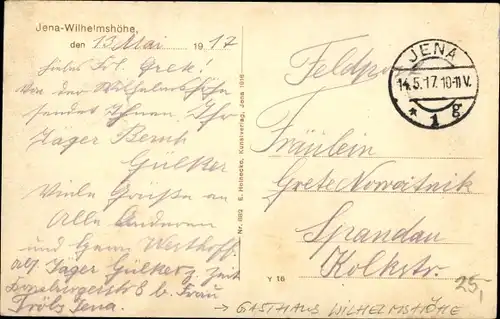 Jena-Wilhelmshöhe,
den 13 Mai 1917
Liebes Frl. Gret!
Von der Wilhelmshöhe
sendet Ihnen, Ihr
Jäger Bernh
Gülker
Viele Grüße an
Alle Anderen
und Herrn Westhoff.
Jäger Gülker z. Zeit
8 b. Frau
Jena.
Nr. 892 E. Heinecke, Kunstverlag, Jena 1916
Feldpost
JENA
14.5.17.10-11V.
* 1 g
Fräulein
Grete Nowaitnik
Spandau
Kolkstr.
Y 16
25,-
→ GASTHAUS WILHELMSHÖHE